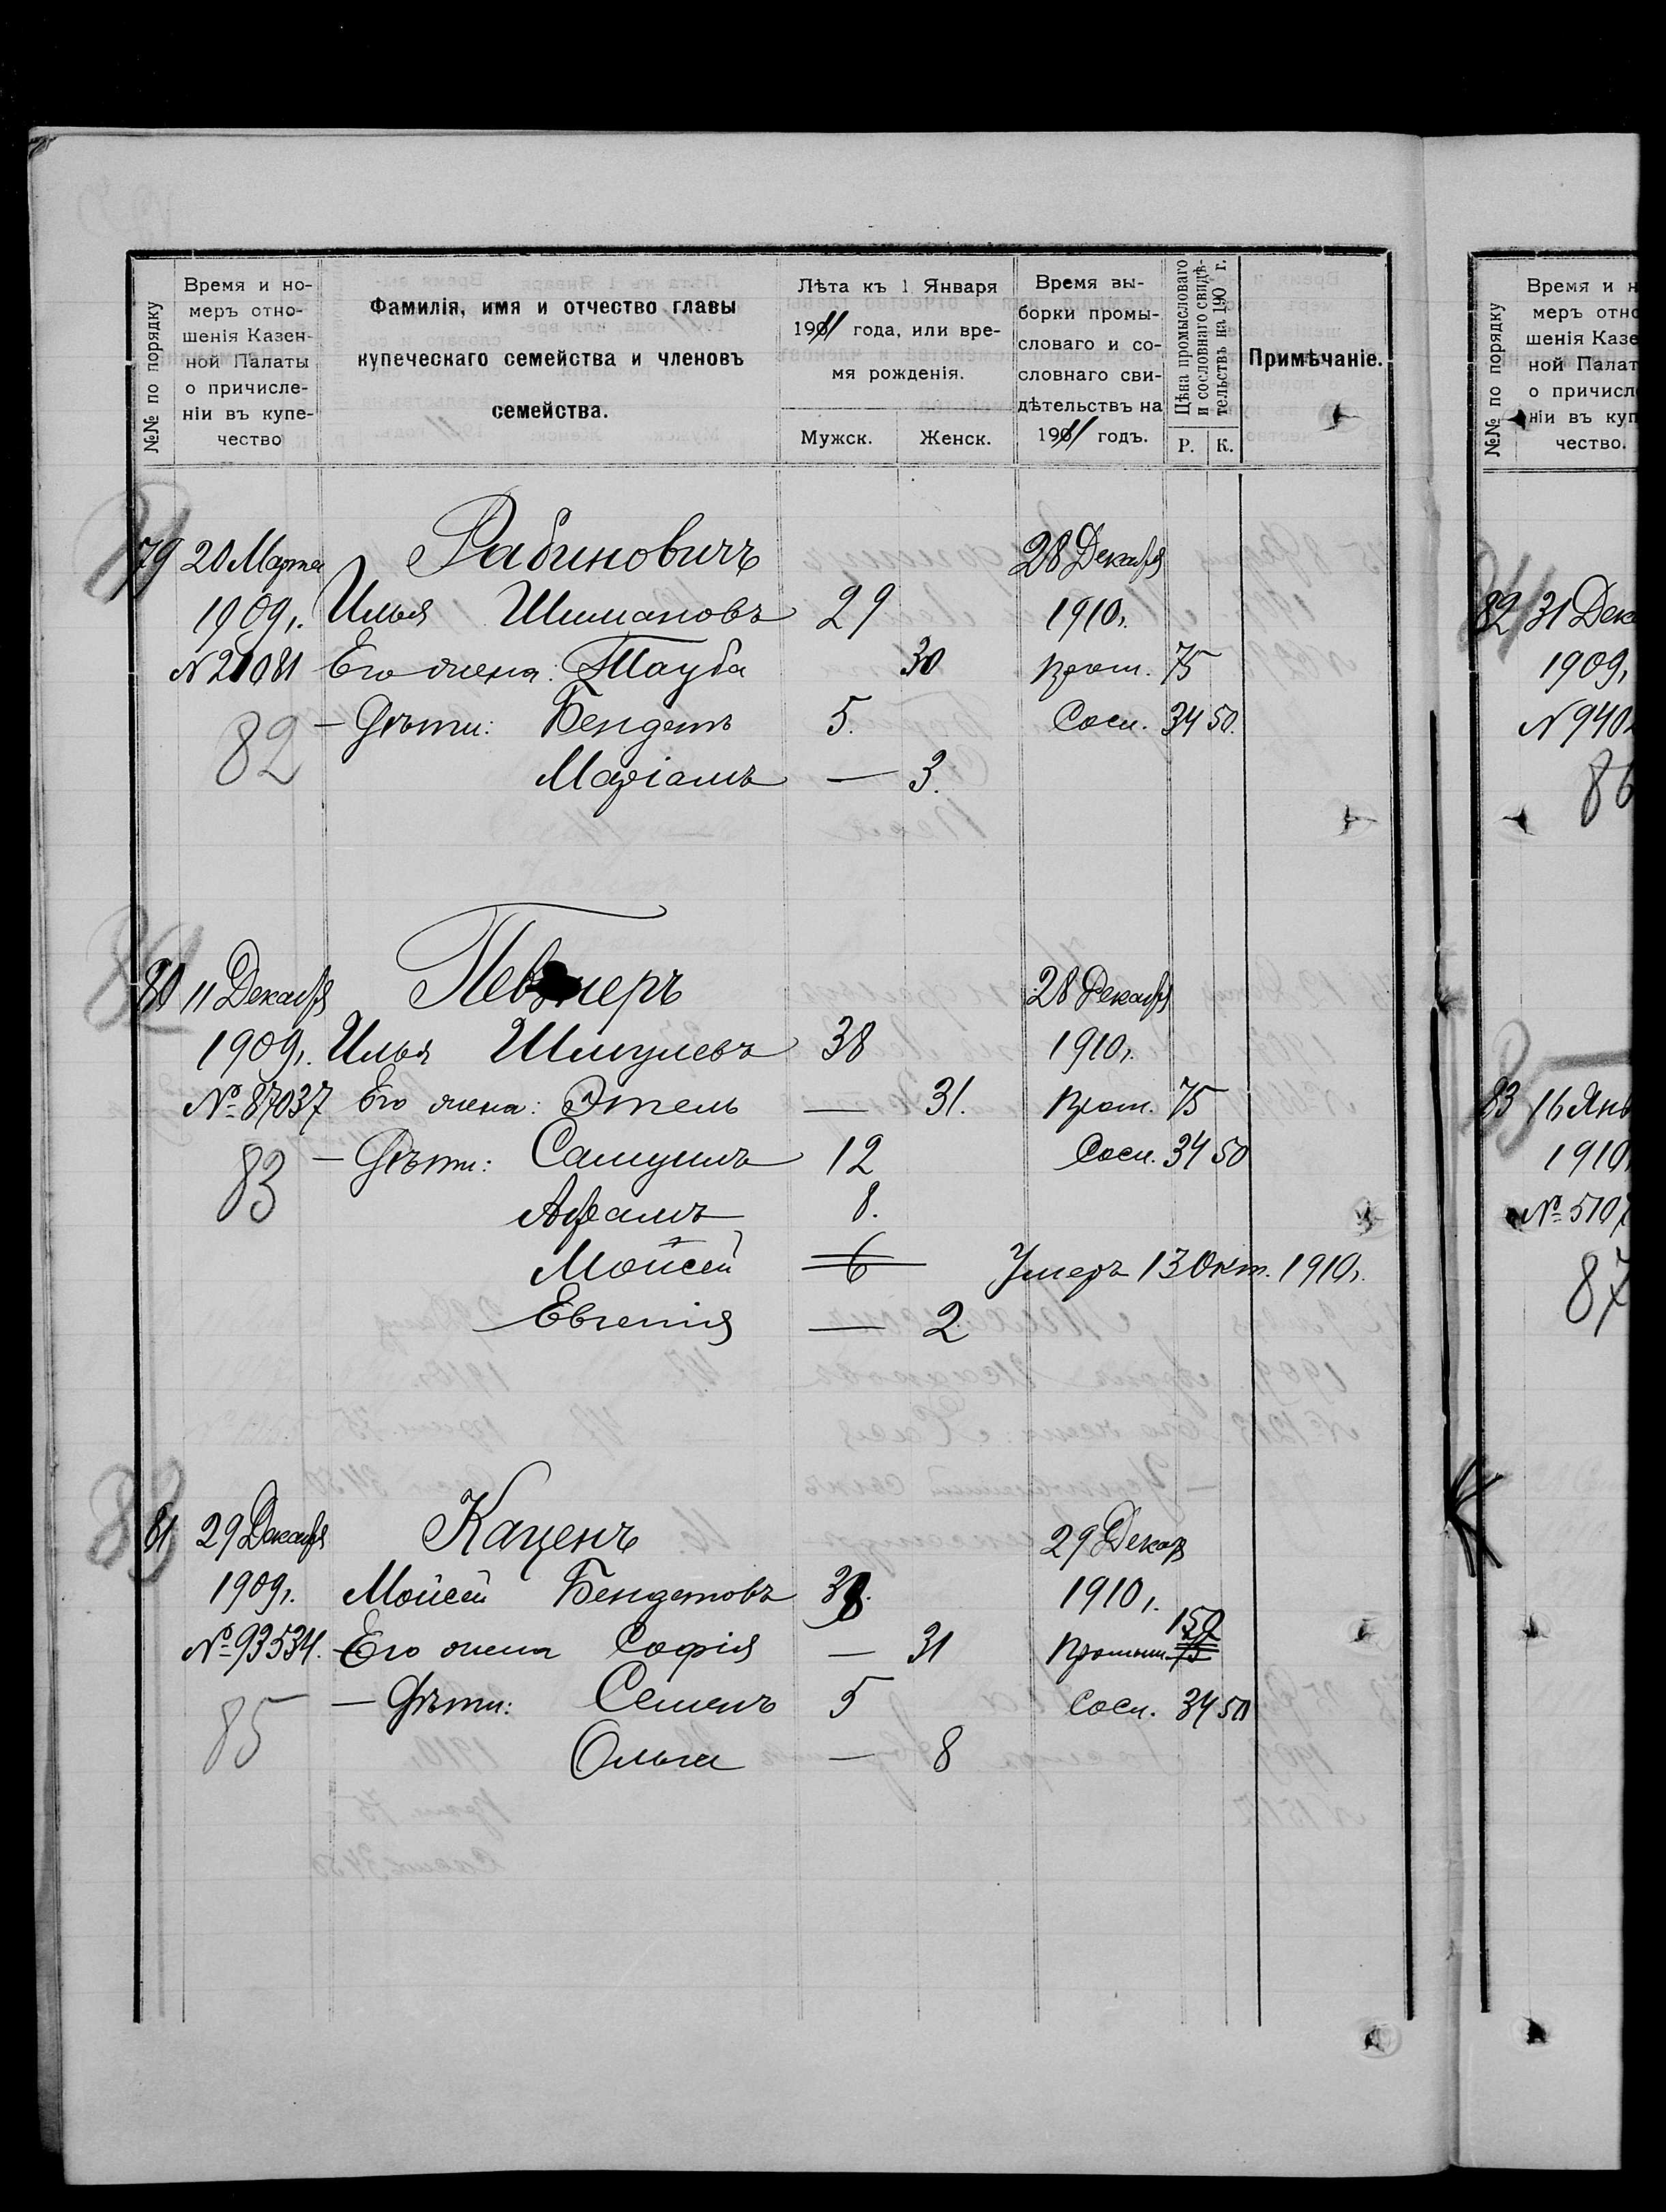 №№ по порядку
Время и но-
меръ отно-
шенія Казен-
ной Палаты
о причисле-
ніи въ купе-
чество
Фамилія, имя и отчество главы
купеческаго семейства и членовъ
семейства.
Лѣта къ 1 Января
1911 года, или вре-
мя рожденія.
Мужск. Женск.
Время вы-
борки промы-
словаго и со-
словнаго сви-
дѣтельствъ на
1911 годъ.
Цѣна промысловаго
и сословнаго свидѣ-
тельствъ на 190 г.
Р. К.
Примѣчаніе.
79 20 Марта Рабиновичъ 28 Декабря
1909 г. Илья Шимановъ 29 1910 г.
№ 21081 Его жена: Тауба 30 Пром. 75
82 — Дѣти: Бендетъ 5. Сосл. 34 50.
Маріамъ — 3.
80 11 Декабря Певзнеръ 28 Декабря
1909 г. Илья Шмулевъ 38 1910 г.
№ 87037 Его жена: Этель — 31. Пром. 75
83 — Дѣти: Самуилъ 12 Сосл. 34 50
Абрамъ 8.
Мойсей 6 Умеръ 13 Окт. 1910 г.
Евгенія — 2
81 29 Декабря Каценъ 29 Декабр
1909 г. Мойсей Бендетовъ 38. 1910 г.
150
№ 93534. Его жена Софія — 31 Промысл. 75
85 — Дѣти: Семенъ 5 Сосл. 34 50
Ольга — 8
№№ по порядку
Время и н
меръ отно
шенія Казе
ной Палат
о причисл
ніи въ куп
чество.
82 31 Дек
1909 г.
№ 940
86
83 16 Янв
1910
№ 5107
87